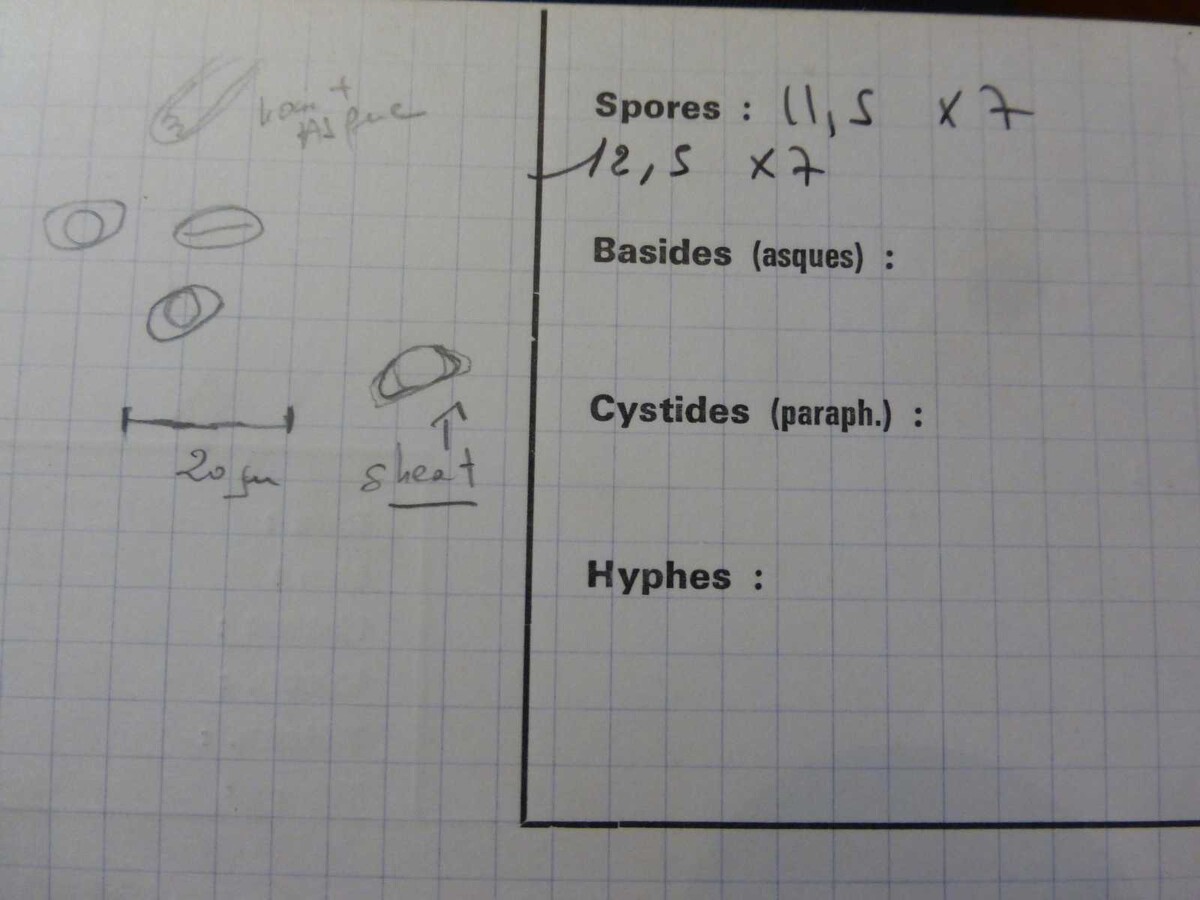 Asque
20 µm
sheat
Spores : 11,5 x 7
12,5 x 7
Basides (asques) :
Cystides (paraph.) :
Hyphes :